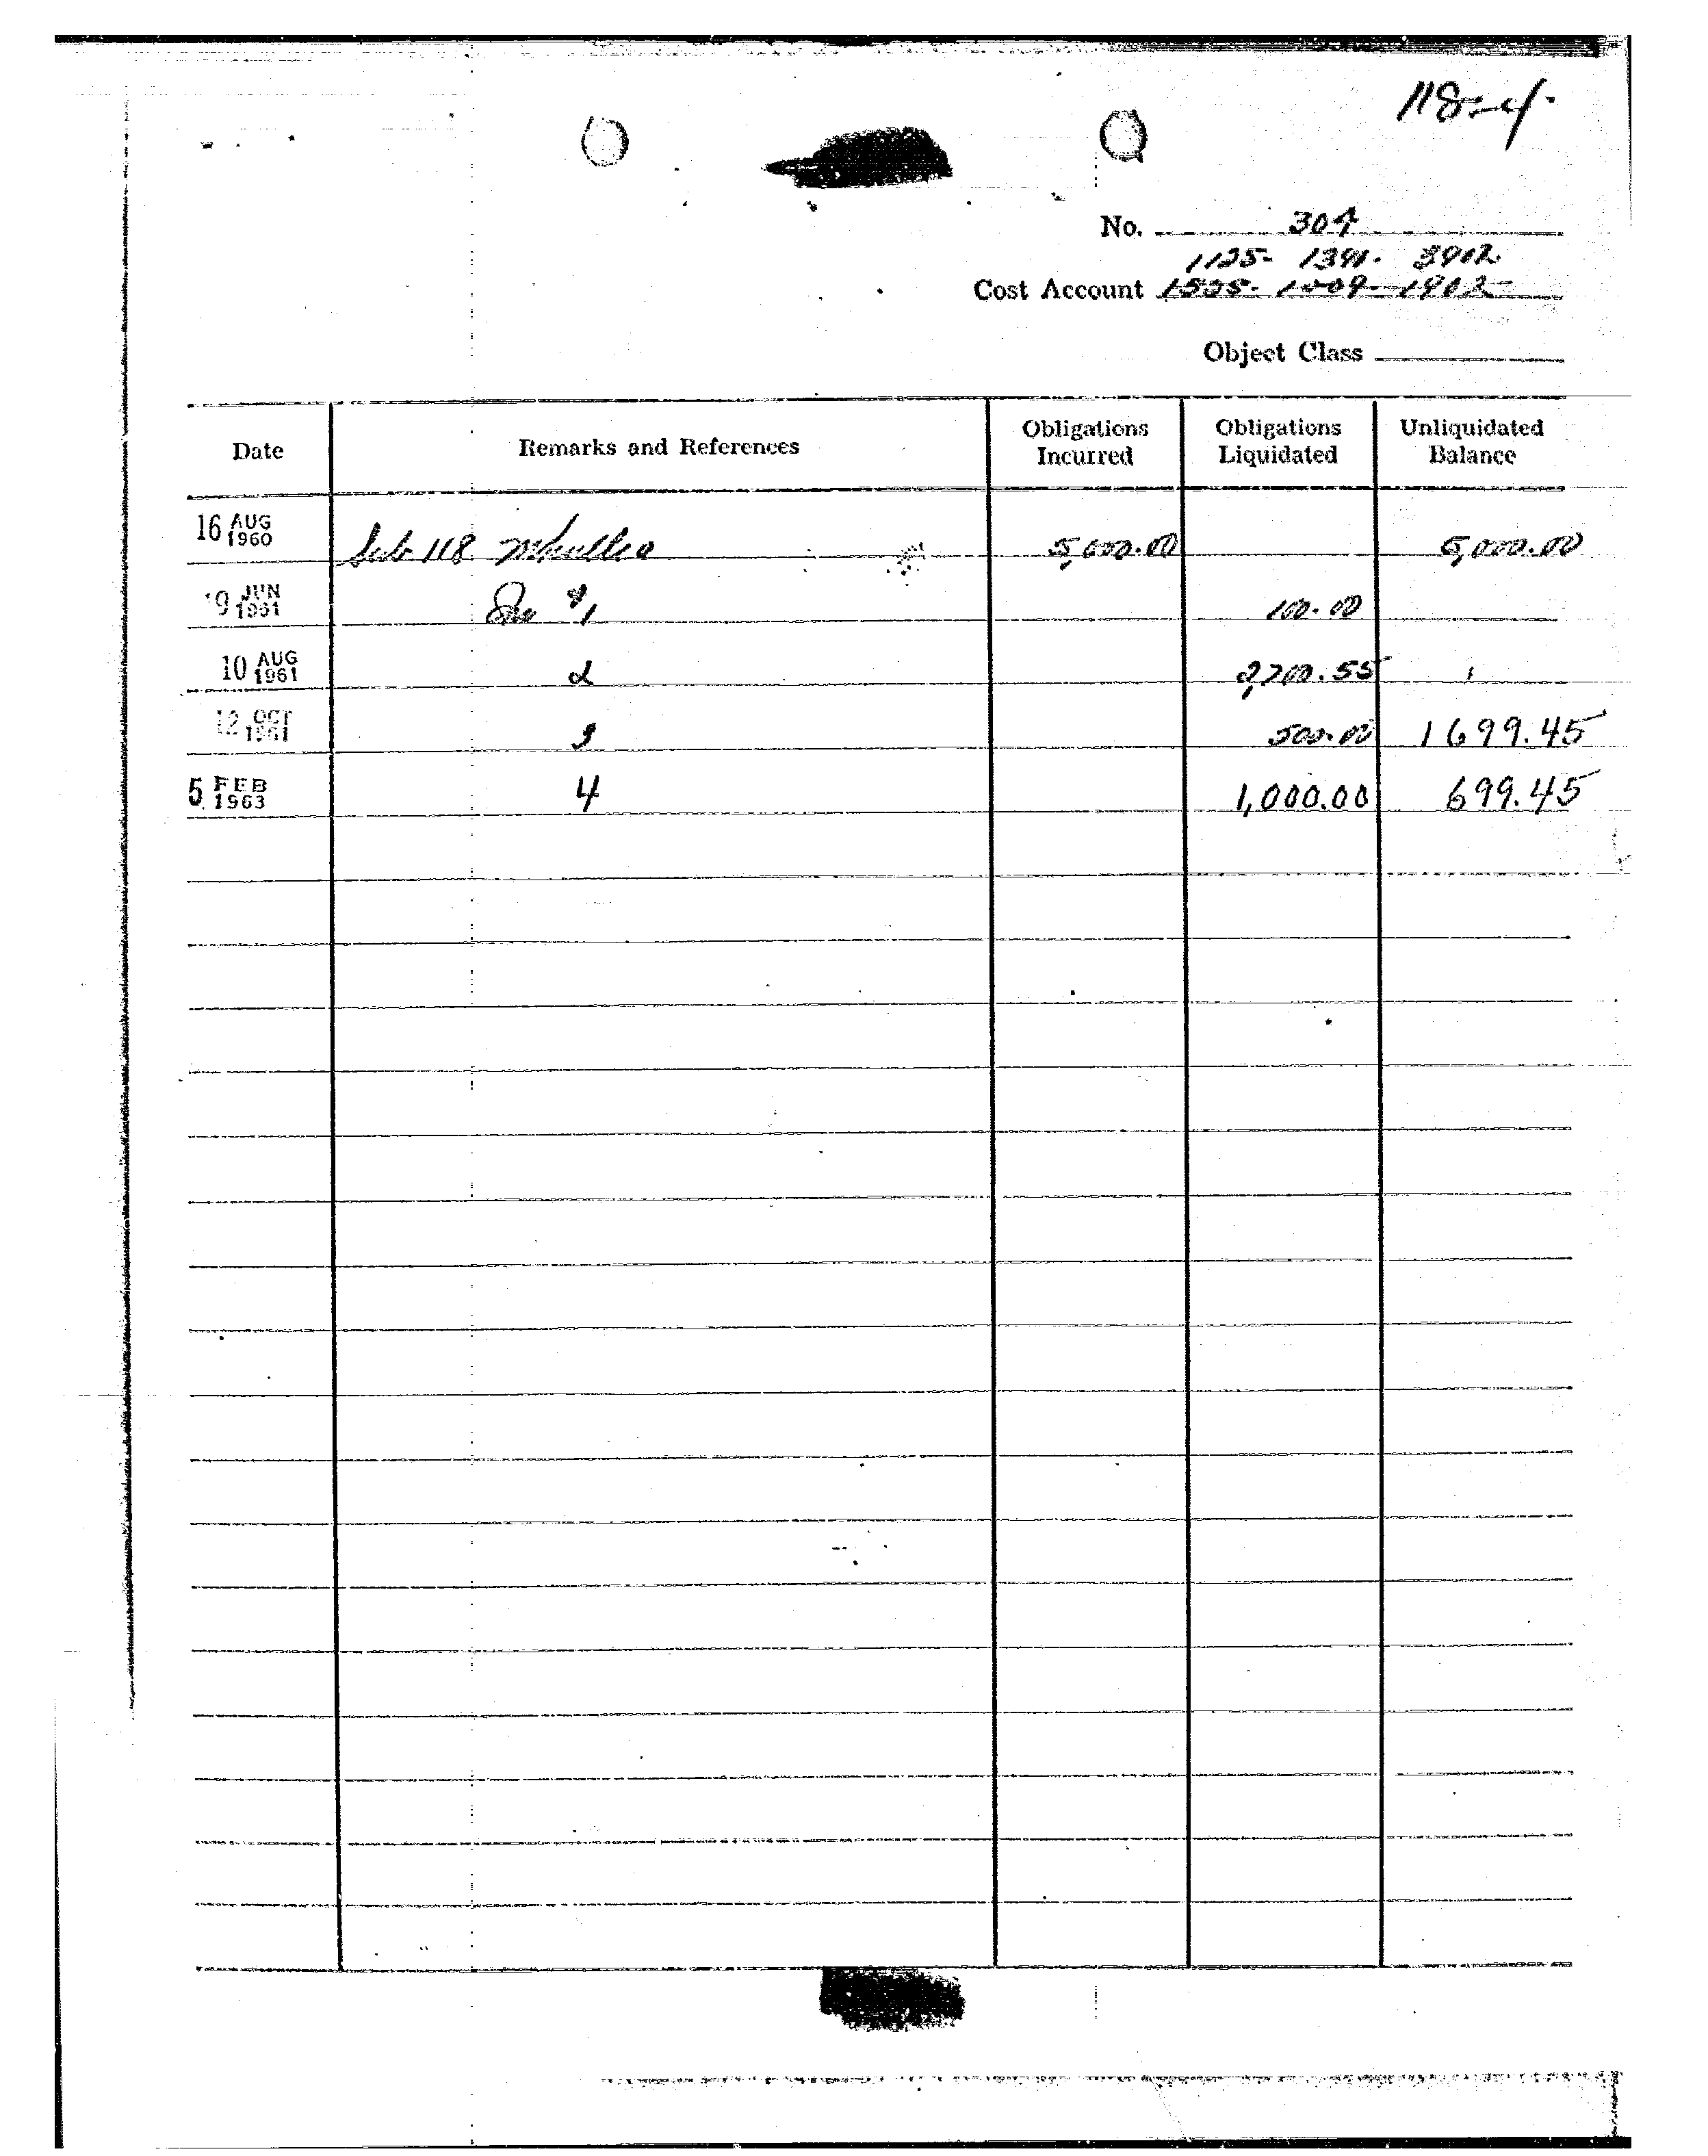 118-4
No. 304
1125- 1390- 3902
Cost Account 1525- 1009- 1902
Object Class
Date Remarks and References Obligations Incurred Obligations Liquidated Unliquidated Balance
16 AUG 1960 Sub 118 5,000.00 5,000.00
19 JUN 1961 Inv #1 100.00
10 AUG 1961 2 2,700.55
12 OCT 1961 3 500.00 1699.45
5 FEB 1963 4 1,000.00 699.45